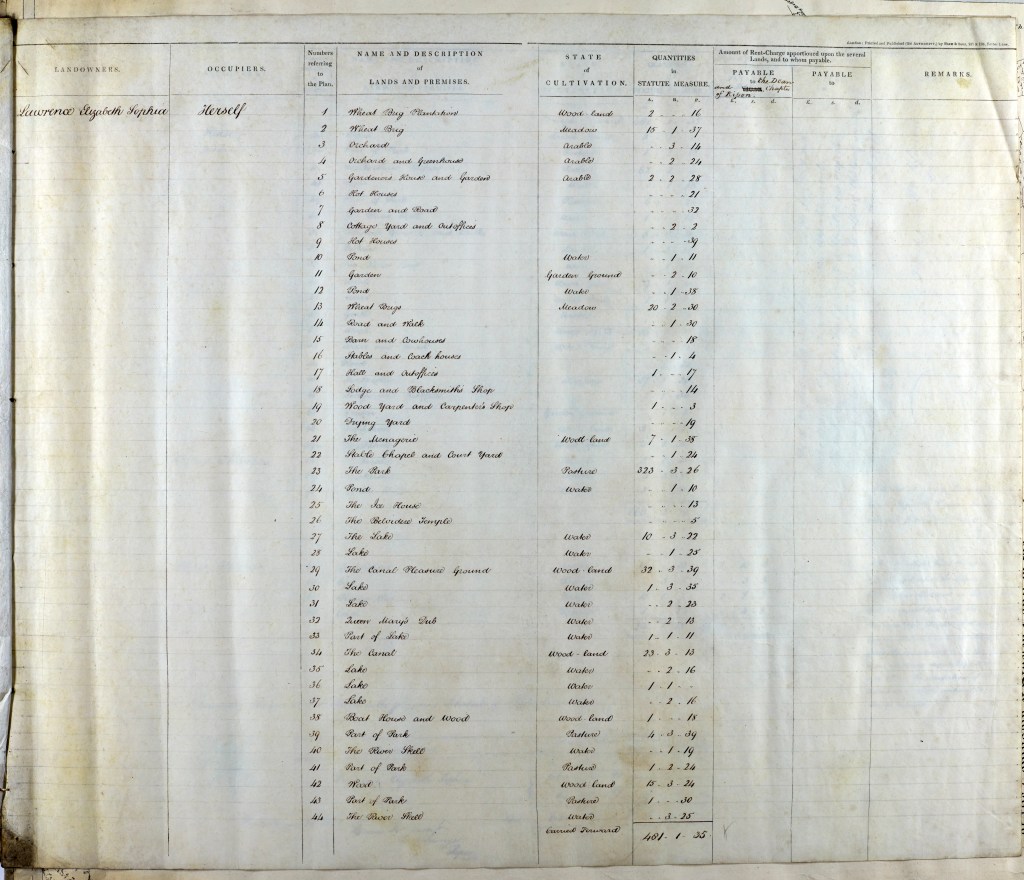 LANDOWNERS. OCCUPIERS. Numbers referring to the Plan. NAME AND DESCRIPTION of LANDS AND PREMISES. STATE of CULTIVATION. QUANTITIES in STATUTE MEASURE. Amount of Rent-Charge apportioned upon the several Lands, and to whom payable. REMARKS.
PAYABLE to the Dean and Chapter of Ripon. PAYABLE to
A. R. P. £. s. d. £. s. d.
Lawrence Elizabeth Sophia Herself 1 Wheat Brig Plantation Wood-land 2 - - 16
2 Wheat Brig Meadow 15 - 1 - 37
3 Orchard Arable - - 3 - 14
4 Orchard and Greenhouse Arable - - 2 - 24
5 Gardeners House and Garden Arable 2 - 2 - 28
6 Hot Houses - - - - 21
7 Garden and Road - - - - 32
8 Cottage Yard and Outoffices - - 2 - 2
9 Hot Houses - - - - 39
10 Pond Water - - 1 - 11
11 Garden Garden Ground - - 2 - 10
12 Pond Water - - 1 - 38
13 Wheat Brigs Meadow 20 - 2 - 30
14 Road and Walk - - 1 - 30
15 Barn and Cowhouses - - - - 18
16 Stables and Coach houses - - 1 - 4
17 Hall and Outoffices 1 - - - 17
18 Lodge and Blacksmith's Shop - - - - 14
19 Wood Yard and Carpenter's Shop 1 - - - 3
20 Drying Yard - - - - 19
21 The Menagerie Wood-land 7 - 1 - 38
22 Stable Chapel and Court Yard - - 1 - 24
23 The Park Pasture 323 - 3 - 26
24 Pond Water - - 1 - 10
25 The Ice House - - - - 13
26 The Belvidere Temple - - - - 5
27 The Lake Water 10 - 3 - 22
28 Lake Water - - 1 - 25
29 The Canal Pleasure Ground Wood-land 32 - 3 - 39
30 Lake Water 1 - 3 - 35
31 Lake Water - - 2 - 23
32 Queen Mary's Dub Water - - 2 - 13
33 Part of Lake Water 1 - 1 - 11
34 The Canal Wood-land 23 - 3 - 13
35 Lake Water - - 2 - 16
36 Lake Water 1 - 1 - -
37 Lake Water - - 2 - 16
38 Boat House and Wood Wood-land 1 - - - 18
39 Part of Park Pasture 4 - 3 - 39
40 The River Skell Water - - 1 - 19
41 Part of Park Pasture 1 - 2 - 24
42 Wood Wood land 15 - 3 - 24
43 Part of Park Pasture 1 - - - 30
44 The River Skell Water - - 3 - 25
Carried Forward 481 - 1 - 35